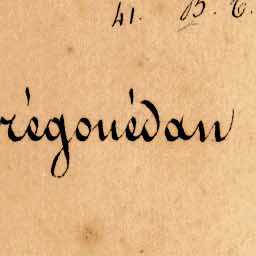 41. B. C.
régouédan